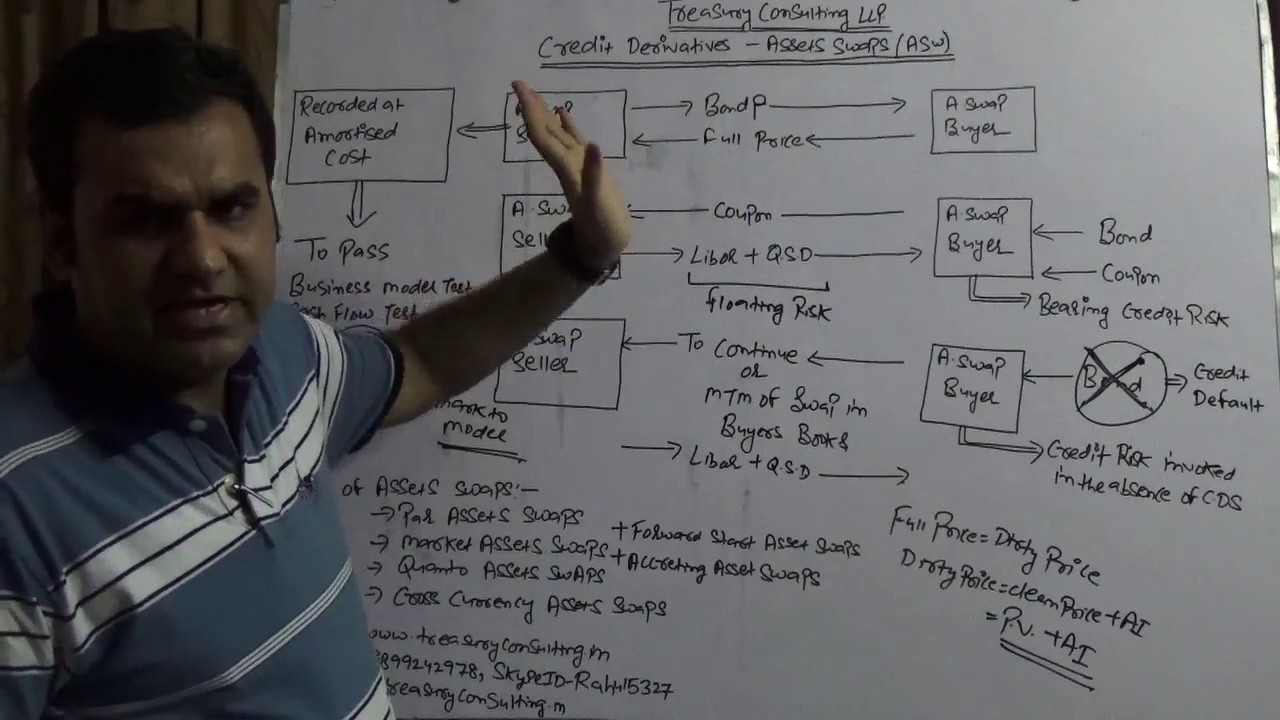 Treasury Consulting LLP
Credit Derivatives - Assets Swaps (ASW)
Recorded at
Amortised
Cost
To Pass
Business model Test
Flow Test
mark to
model
Bond P
Full Price
A swap
Buyer
A. Swap
Sell
Coupon
Libor + Q.S.D
floating Risk
A swap
Buyer
Bond
Coupon
Bearing Credit Risk
swap
Seller
To Continue
or
MTM of Swap in
Buyers Books
Libor + Q.S.D
A. swap
Buyer
Bond
Credit
Default
Credit Risk invoked
in the absence of CDS
of Assets Swaps:-
→ Par Assets Swaps
→ Market Assets Swaps
→ Quanto Assets Swaps
→ Cross Currency Assets Swaps
+ Forward Start Asset Swaps
+ Accreting Asset Swaps
Full Price = Dirty Price
Dirty Price = clean Price + AI
= P.V. + AI
www.treasuryconsulting.in
899242978, SkypeID-Rahul5327
treasuryconsulting.in